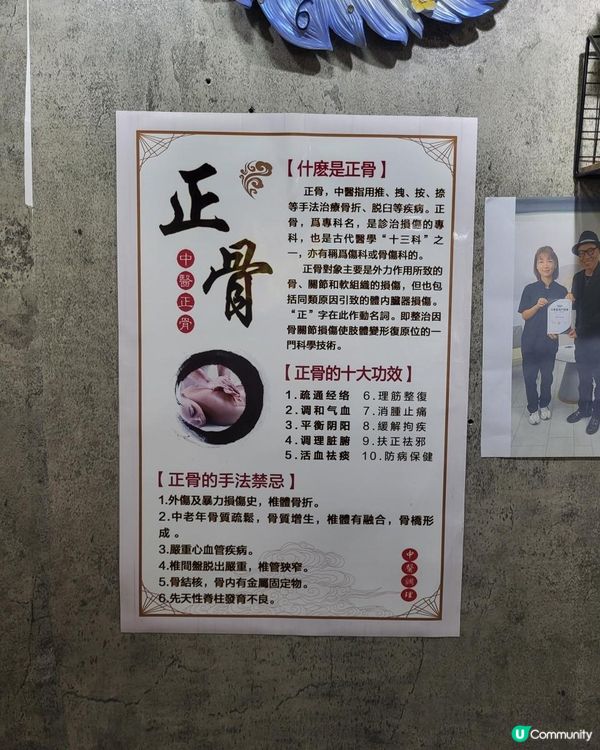 正骨
中醫正骨
【什麽是正骨】
正骨，中醫指用推、拽、按、捺
等手法治療骨折、脱臼等疾病。正
骨，爲專科名，是診治損傷的專
科，也是古代醫學“十三科”之
一，亦有稱爲傷科或骨傷科的。
正骨對象主要是外力作用所致的
骨、關節和軟組織的損傷，但也包
括同類原因引致的體内臟器損傷。
“正”字在此作動名詞。即整治因
骨關節損傷使肢體變形復原位的一
門科學技術。
【正骨的十大功效】
1.疏通经络 6.理筋整復
2.调和气血 7.消腫止痛
3.平衡阴阳 8.緩解拘疾
4.调理脏腑 9.扶正祛邪
5.活血祛痰 10.防病保健
【正骨的手法禁忌】
1.外傷及暴力損傷史，椎體骨折。
2.中老年骨質疏鬆，骨質增生，椎體有融合，骨橋形
成。
3.嚴重心血管疾病。
4.椎間盤脱出嚴重，椎管狹窄。
5.骨結核，骨内有金属固定物。
6.先天性脊柱發育不良。
中醫調理
U Community